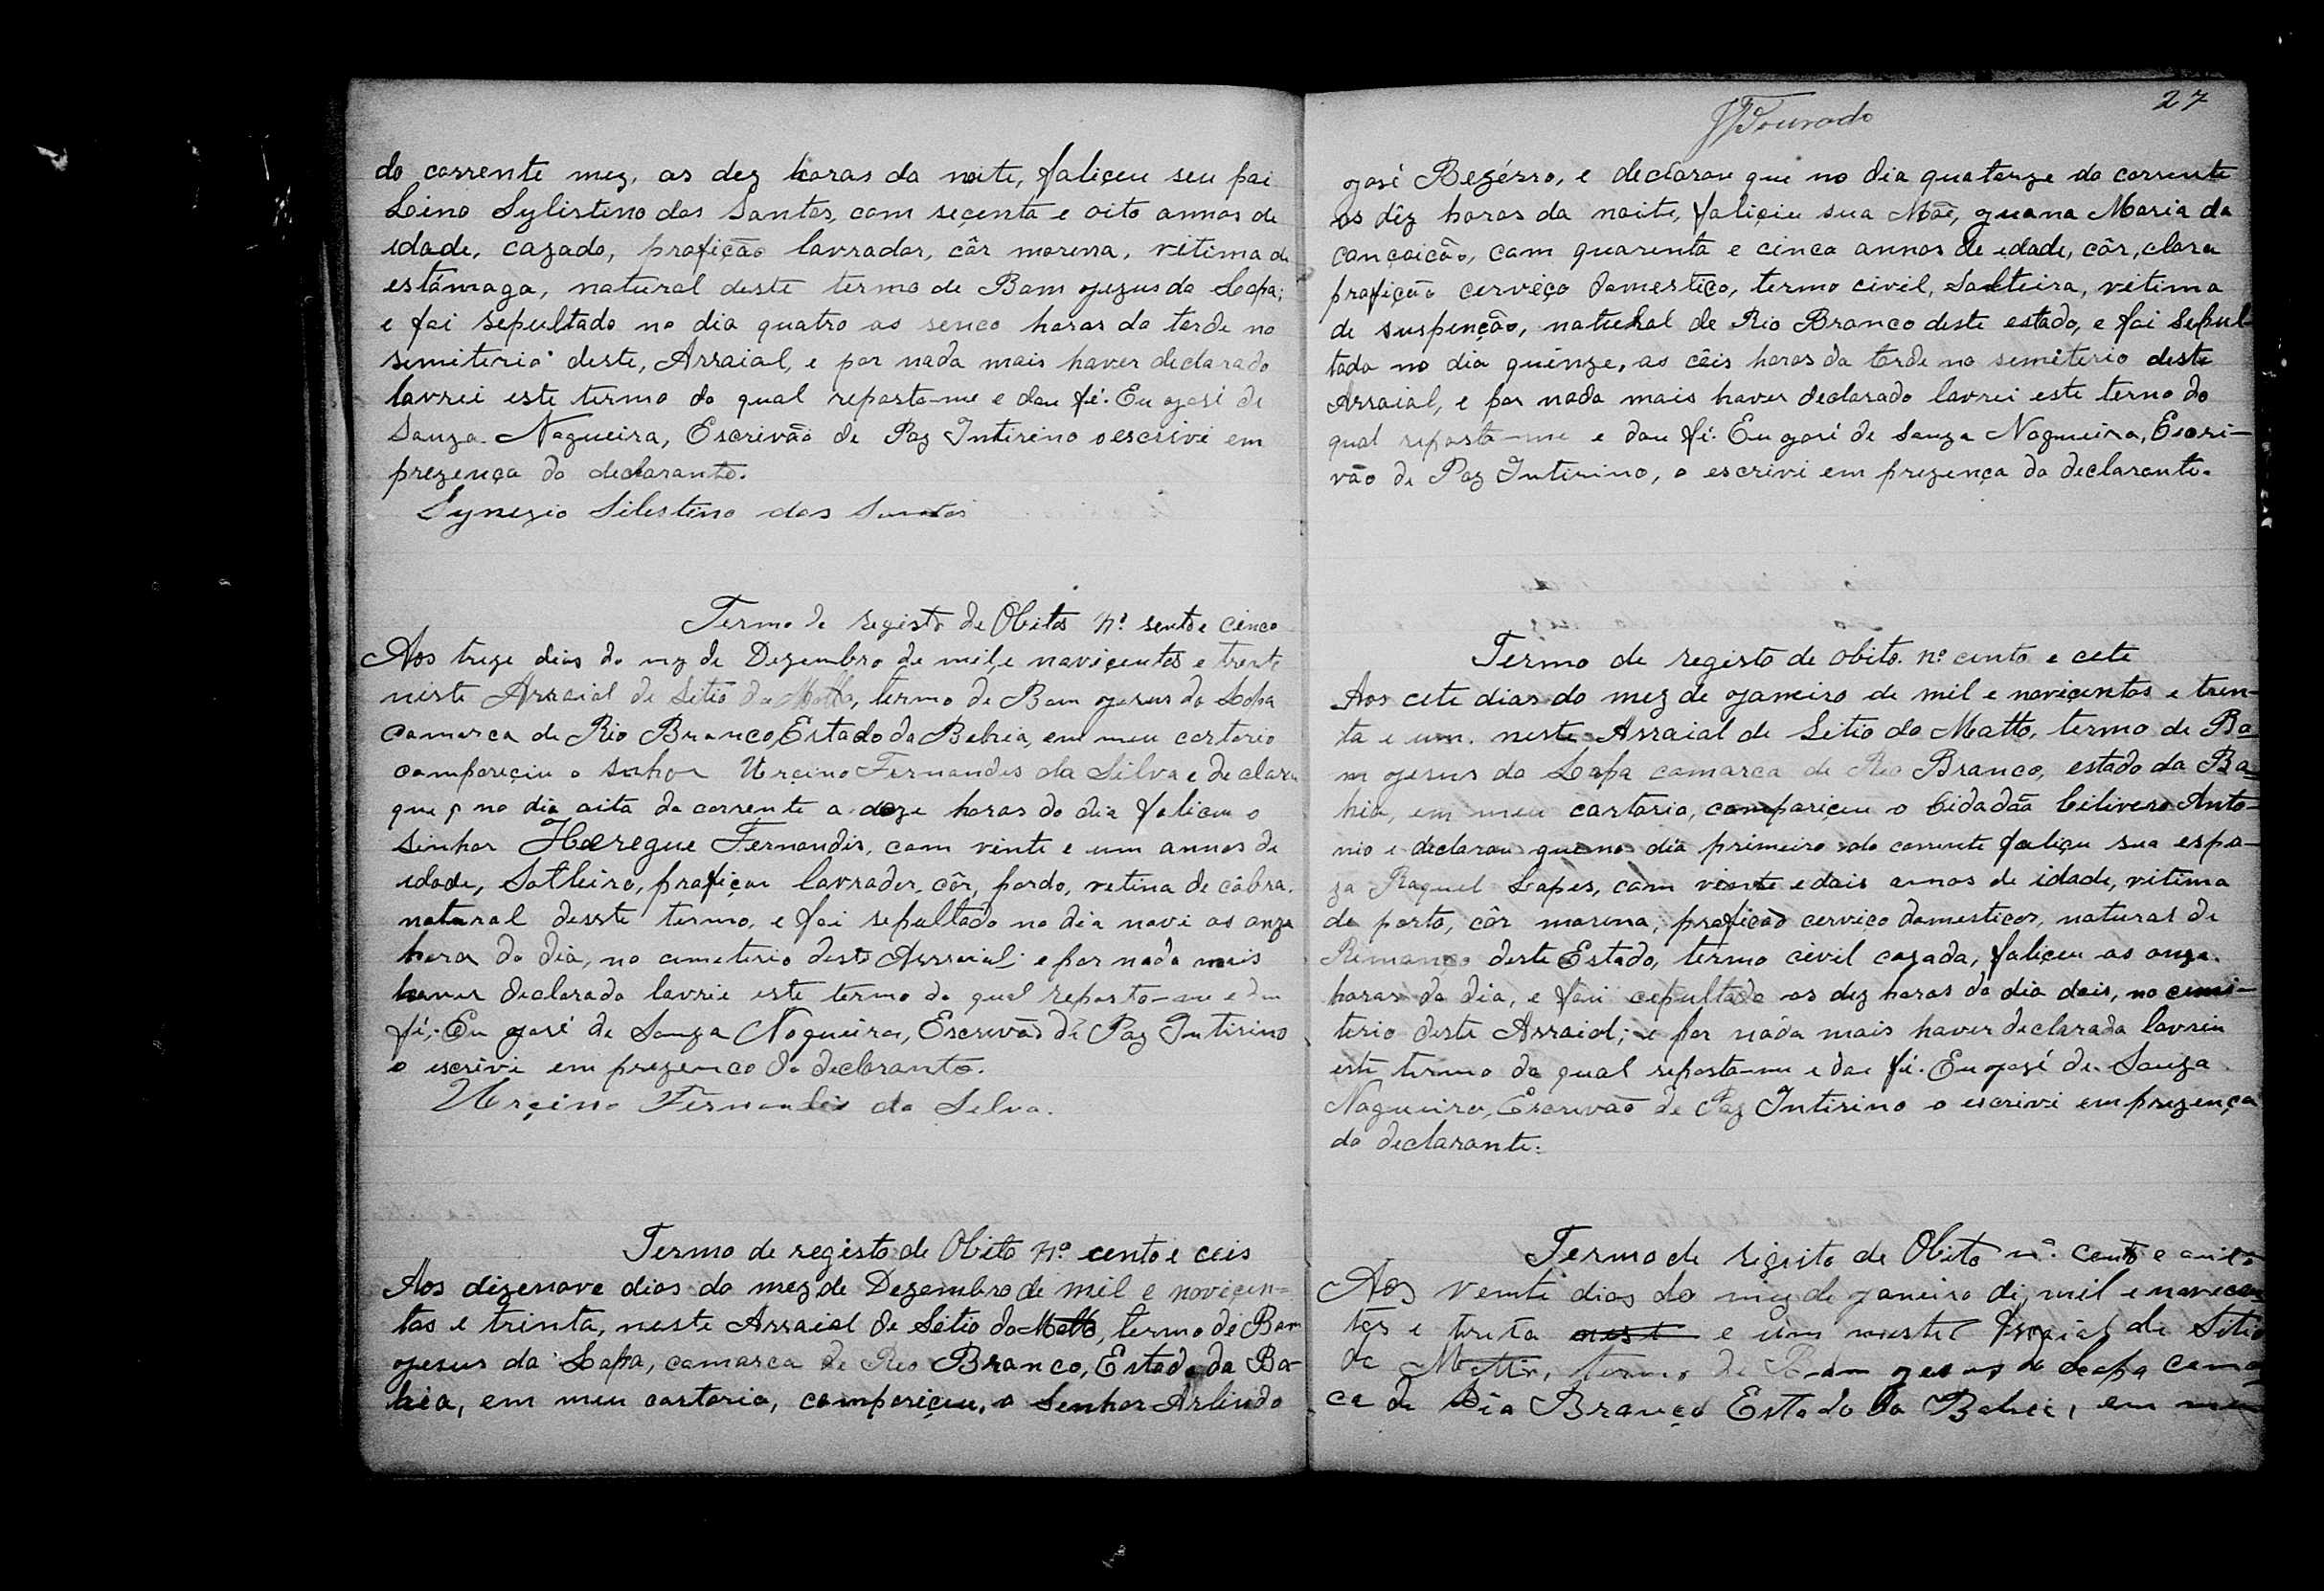 do corrente mez, as dez horas da noite, faliçeu seu pai
Lino Sylistino dos Santos, com seçenta e oito annos de
idade, cazado, profição lavrador, côr morena, vitima de
estámaga, natural deste termo de Bom Jezus da Lapa;
e foi sepultado no dia quatro as senco horas da tarde no
semiterio deste, Arraial, e por nada mais haver declarado
lavrei este termo do qual reporto-me e dou fé. Eu José de
Souza Nogueira, Escrivão de Paz Intirino o escrivi em
prezença do declarante.
Synezio Silestino dos Santos
Termo de registo de Obitos Nº sento e cinco
Aos treze dias do mez de Dezembro de mil e noviçentos e trenta
niste Arraial de Sitio do Matto, termo de Bom Jesus da Lapa
Camarca de Rio Branco, Estado da Bahia, em meu cartorio
compareçiu o senhor Urçino Fernandes da Silva e declarou
que no dia oita do corrente a doze horas do dia faliceu o
Sinhor Fernandis, com vinte e um annos de
idade, Solteiro, profiçau lavrador, côr, pardo, vetina de cóbra,
natural desste termo, e foi sepultado no dia novi as onze
hora do dia, no cimeterio deste Arraial; e por nada mais
haver declarado lavrie este termo do qual reporto-me e dou
fé. Eu José de Souza Nogueira, Escrivão de Paz Intirino
o escrivi em prezenco do declarante.
Urçino Fernandes da Silva.
Termo de registo de Obito Nº cento e ceis
Aos dizenove dias do mez de Dezembro de mil e noviçen-
tos e trinta, neste Arraial de Sitio do Matto, termo de Bom
Jesus da Lapa, camarca de Rio Branco, Estado da Ba-
hia, em meu cartorio, compariçeu, o Senhor Arlindo
27
José Bezérro, e declarou que no dia quatorze do corrente
as dêz horas da noite, faliçiu sua Mãe, Juana Maria da
Conçoicão, com quarenta e cinco annos de edade, côr, clara
profição cerviço domestiço, termo civil, Solteira, vitima
de suspenção, natural de Rio Branco deste estado, e foi Sepul-
tada no dia quinze, as cêis horas da tarde no semiterio deste
Arraial, e por nada mais haver declarado lavrei este termo do
qual reporto-me e dou fé. Eu José de Souza Nogueira, Escri-
vão de Paz Intirino, o escrivi em prezença do declarante.
Termo de registo de obito. nº cento e cete
Aos cete dias do mez de Janeiro de mil e noviçentos e tren-
ta e um. neste Arraial de Sitio do Matto, termo de Bo
m Jesus da Lapa camarca de Rio Branco, estado da Ba-
hia, em meu cartorio, compariçeu o Cidadão Antô-
nio e declarou que no dia primeiro do corrente faliçeu sua espo-
za Raquel Lopes, com vinte e dois annos de idade, vitima
de parto, côr morena, profição cerviço domesticos, natural de
Rimanso deste Estado, termo civil cazada, faliçeu as onze.
horas do dia, e foi cepultada as dez horas do dia dois, no cimi-
terio deste Arraial; e por náda mais haver declarado lavrei
este termo do qual reposto-me e dou fé. Eu José de Souza
Nogueira, Escrivão de Paz Intirino o escrivi em prezença
do declarante.
Termo de rigisto de Obito nº cento e
Aos vente dias do mez de Janeiro di mil e
tos e treta e um Arraial di Sitio
do Matto, termo de Bom Jesus da Lapa
ca de Rio Branco Estado da Bahia, em meu